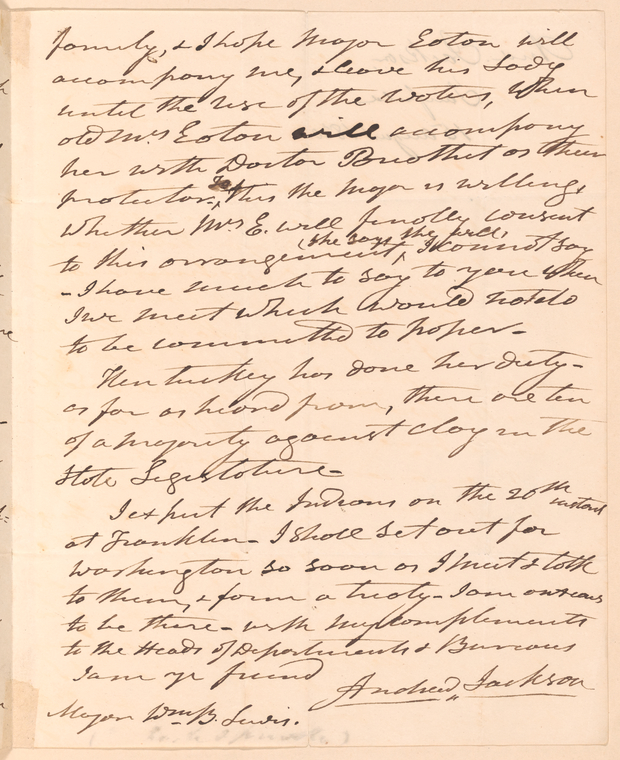 family, & I hope Major Eaton will
accompany me, & leave his Lady
until the rise of the waters, when
old Mrs Eaton will accompany
her with Doctor Breathet as their
protector. To this the Major is willing,
whether Mrs E. will finally consent
(she says she will)
to this arrangement, I cannot say
- I have much to say to you when
we meet which would not do
to be committed to paper -
Kentuckey has done her duty -
as far as heard from, there are ten
of a majority against Clay in the
State Legislature -
I expect the Indians on the 20th instant
at Franklin - I shall set out for
Washington so soon as I meet & talk
to them, & form a treaty - I am anxious
to be there - with my complements
to the Heads of Departments & Bureaus
I am yr friend
Andrew Jackson
Major Wm B. Lewis.